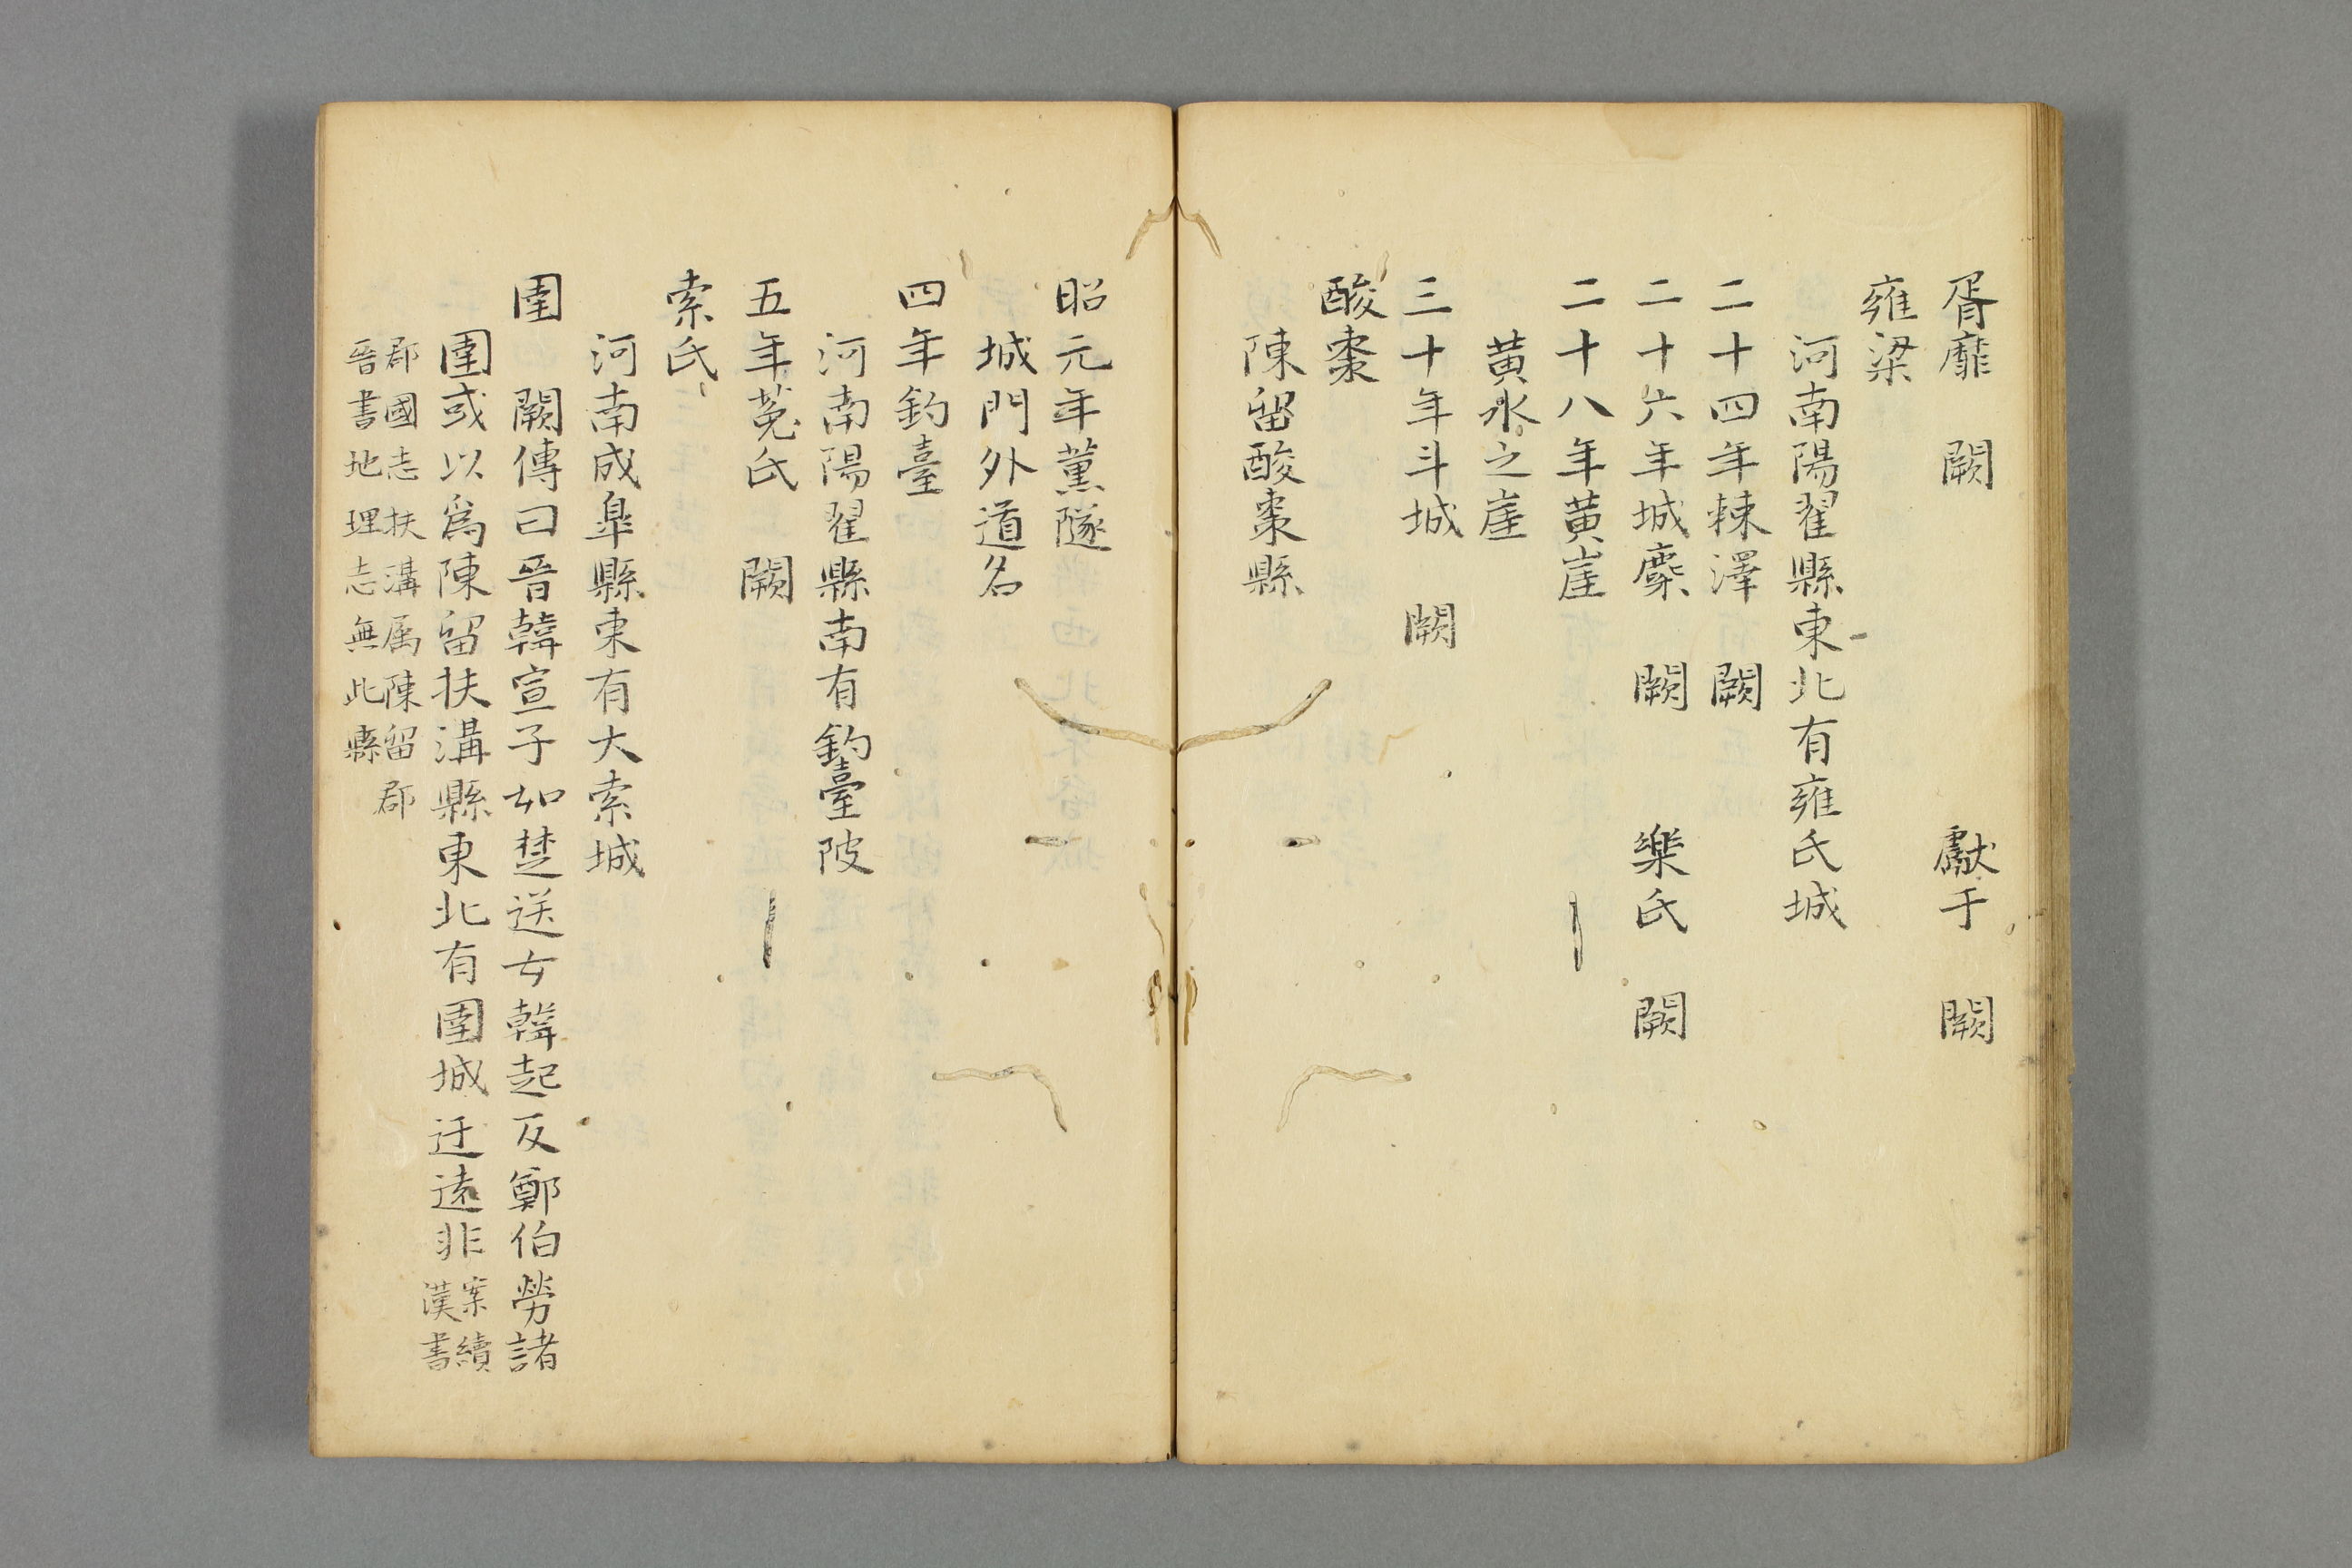 胥靡　闕　獻于　闕
雍梁
河南陽翟縣東北有雍氏城
二十四年棘澤　闕
二十六年城麇　闕　樂氏　闕
二十八年黄崖
黄水之崖
三十年斗城　闕
酸棗
陳留酸棗縣
昭元年薫隧
城門外道名
四年釣臺
河南陽翟縣南有釣臺陂
五年菟氏　闕
索氏
河南成臯縣東有大索城
圉　闕傳曰晉韓宣子如楚送女韓起反鄭伯勞諸
圉或以爲陳留扶溝縣東北有圉城迂遠非案續漢書
郡國志扶溝屬陳留郡
晉書地理志無此縣